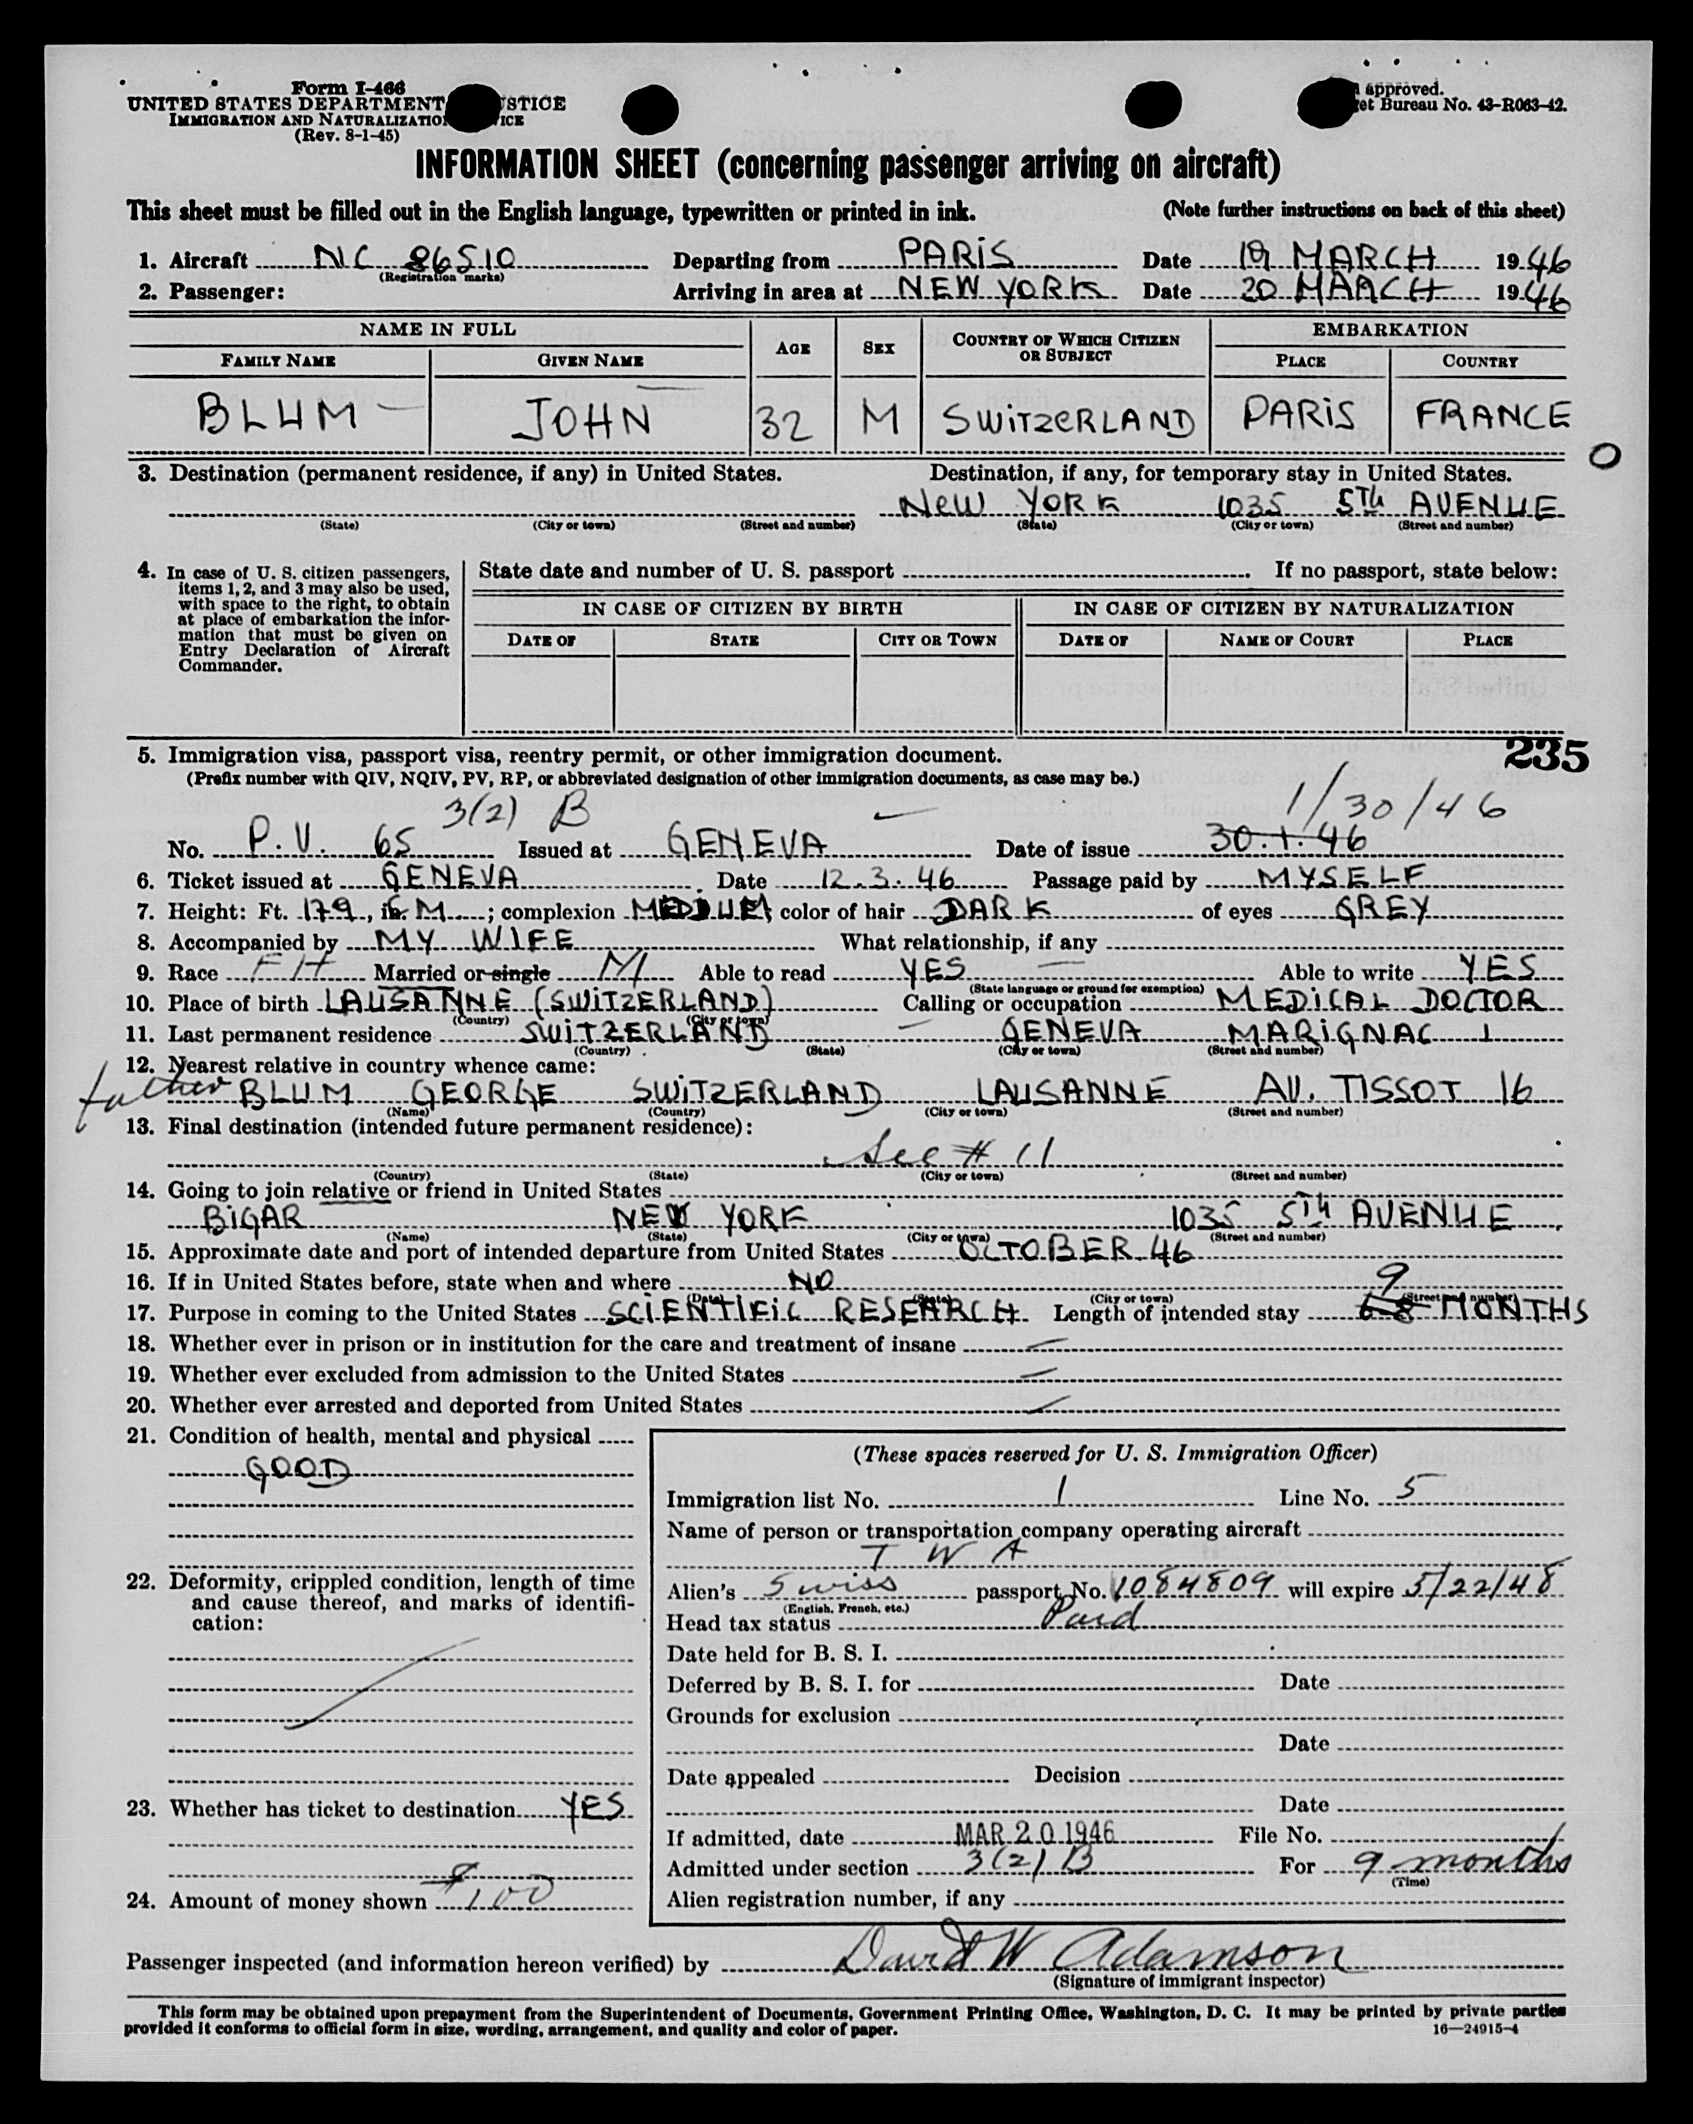 Form I-466
UNITED STATES DEPARTMENT STICE
IMMIGRATION AND NATURALIZATIO ICE
(Rev. 8-1-45)
approved.
et Bureau No. 43-R063-42.
INFORMATION SHEET (concerning passenger arriving on aircraft)
This sheet must be filled out in the English language, typewritten or printed in ink. (Note further instructions on back of this sheet)
1. Aircraft NC 86510 Departing from PARIS Date 19 MARCH 1946
(Registration marks)
2. Passenger: Arriving in area at NEW YORK Date 20 MARCH 1946
NAME IN FULL AGE SEX COUNTRY OF WHICH CITIZEN OR SUBJECT EMBARKATION
FAMILY NAME GIVEN NAME PLACE COUNTRY
BLUM JOHN 32 M SWITZERLAND PARIS FRANCE
O
3. Destination (permanent residence, if any) in United States. Destination, if any, for temporary stay in United States.
NEW YORK 1035 5TH AVENUE
(State) (City or town) (Street and number) (State) (City or town) (Street and number)
4. In case of U. S. citizen passengers, items 1, 2, and 3 may also be used, with space to the right, to obtain at place of embarkation the information that must be given on Entry Declaration of Aircraft Commander.
State date and number of U. S. passport If no passport, state below:
IN CASE OF CITIZEN BY BIRTH IN CASE OF CITIZEN BY NATURALIZATION
DATE OF STATE CITY OR TOWN DATE OF NAME OF COURT PLACE
235
5. Immigration visa, passport visa, reentry permit, or other immigration document.
(Prefix number with QIV, NQIV, PV, RP, or abbreviated designation of other immigration documents, as case may be.)
3(2) B 1/30/46
No. P.V. 65 Issued at GENEVA Date of issue 30.1.46
6. Ticket issued at GENEVA Date 12.3.46 Passage paid by MYSELF
7. Height: Ft. 179, in. CM; complexion MEDIUM color of hair DARK of eyes GREY
8. Accompanied by MY WIFE What relationship, if any
9. Race FH Married or single M Able to read YES Able to write YES
(State language or ground for exemption)
10. Place of birth LAUSANNE (SWITZERLAND) Calling or occupation MEDICAL DOCTOR
(Country) (City or town)
11. Last permanent residence SWITZERLAND GENEVA MARIGNAC 1
(Country) (State) (City or town) (Street and number)
12. Nearest relative in country whence came:
father BLUM GEORGE SWITZERLAND LAUSANNE AV. TISSOT 16
(Name) (Country) (City or town) (Street and number)
13. Final destination (intended future permanent residence):
See # 11
(Country) (State) (City or town) (Street and number)
14. Going to join relative or friend in United States
BIGAR NEW YORK 1035 5TH AVENUE
(Name) (State) (City or town) (Street and number)
15. Approximate date and port of intended departure from United States OCTOBER 46
16. If in United States before, state when and where NO
(Date) (State) (City or town) (Street and number)
9
17. Purpose in coming to the United States SCIENTIFIC RESEARCH Length of intended stay 6-8 MONTHS
18. Whether ever in prison or in institution for the care and treatment of insane
19. Whether ever excluded from admission to the United States
20. Whether ever arrested and deported from United States
21. Condition of health, mental and physical
GOOD
22. Deformity, crippled condition, length of time and cause thereof, and marks of identification:
23. Whether has ticket to destination YES
24. Amount of money shown $100
(These spaces reserved for U. S. Immigration Officer)
Immigration list No. 1 Line No. 5
Name of person or transportation company operating aircraft
T W A
Alien's Swiss passport No. 1084809 will expire 5/22/48
(English, French, etc.)
Head tax status Paid
Date held for B. S. I.
Deferred by B. S. I. for Date
Grounds for exclusion
Date
Date appealed Decision
Date
If admitted, date MAR 20 1946 File No.
Admitted under section 3(2) B For 9 months
(Time)
Alien registration number, if any
Passenger inspected (and information hereon verified) by David W Adamson
(Signature of immigrant inspector)
This form may be obtained upon prepayment from the Superintendent of Documents, Government Printing Office, Washington, D. C. It may be printed by private parties
provided it conforms to official form in size, wording, arrangement, and quality and color of paper. 16—24915-4